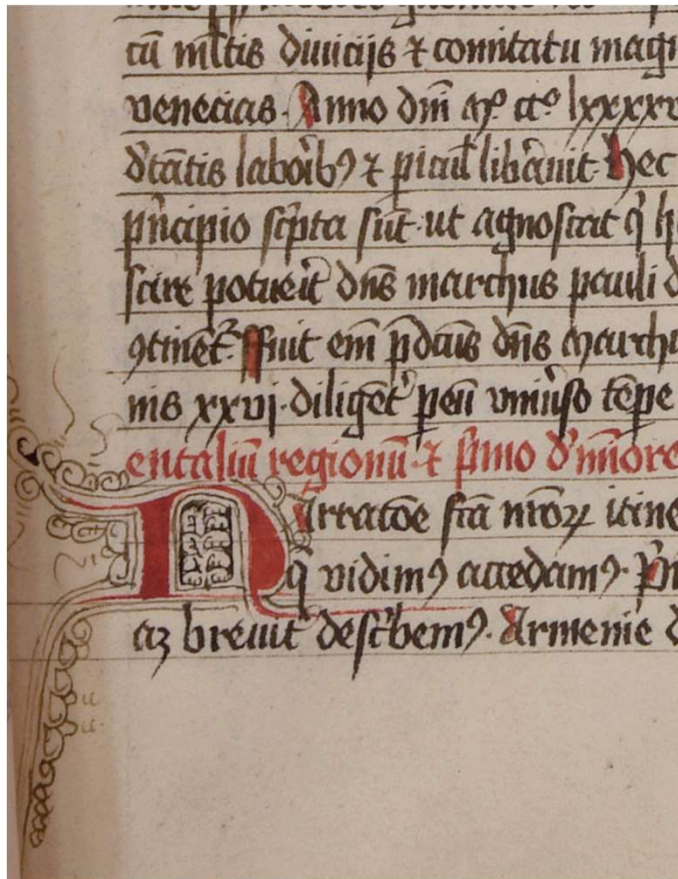 cū ml̄tis diuicijs ⁊ comitatu magn
venecias. Anno dn̄i mº ccº lxxxxv
p̄ncipio sc̄pta sūt. ut agnoscat q̇ h
scire potueit̄ dn̄s marchus pauli d
ꝯtinēt᷑. ffuit em̄ p̄dc̄us dn̄s marchu
nis xxvi. diligēt᷑ p eū vniu̾so tēpe
entaliū regionū. ⁊ p̄mo d̾ mīore
Narracōe fc̄a nr̄oꝝ itine
q̄ vidimꝰ accedamꝰ. Pri
aꝫ breuit̾ desc̾bemꝰ. Armenie d